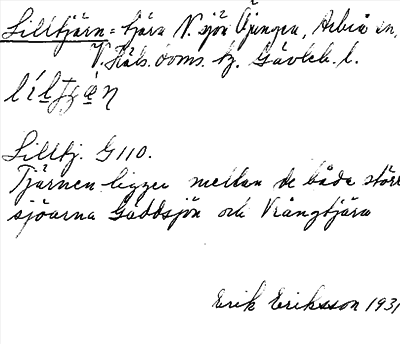 Lilltjärn = tjärn N. sjön Öjungen, Arbrå sn,
V. Häls. doms. tj. Gävleb. l.
Lilltj. G 110.
Tjärnen ligger mellan de båda störr
sjöarna Gäddsjön och Vrångtjärn
Erik Eriksson 1931